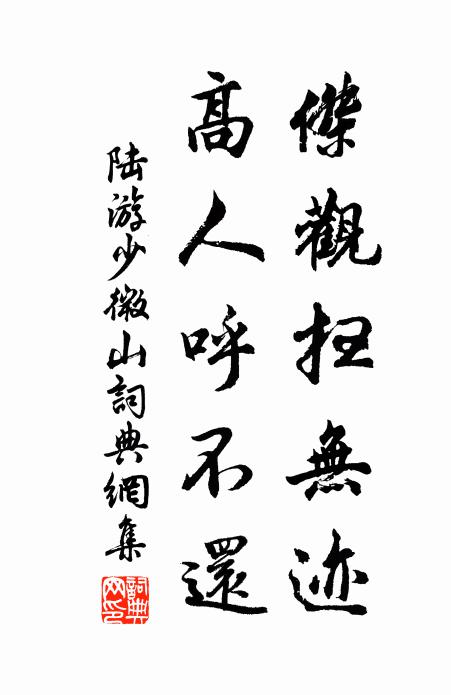 傑觀無迹
高人呼不還
陸游少微山詞典網集
詞典
网印